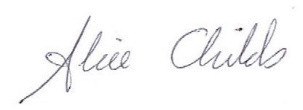 Alice Childs